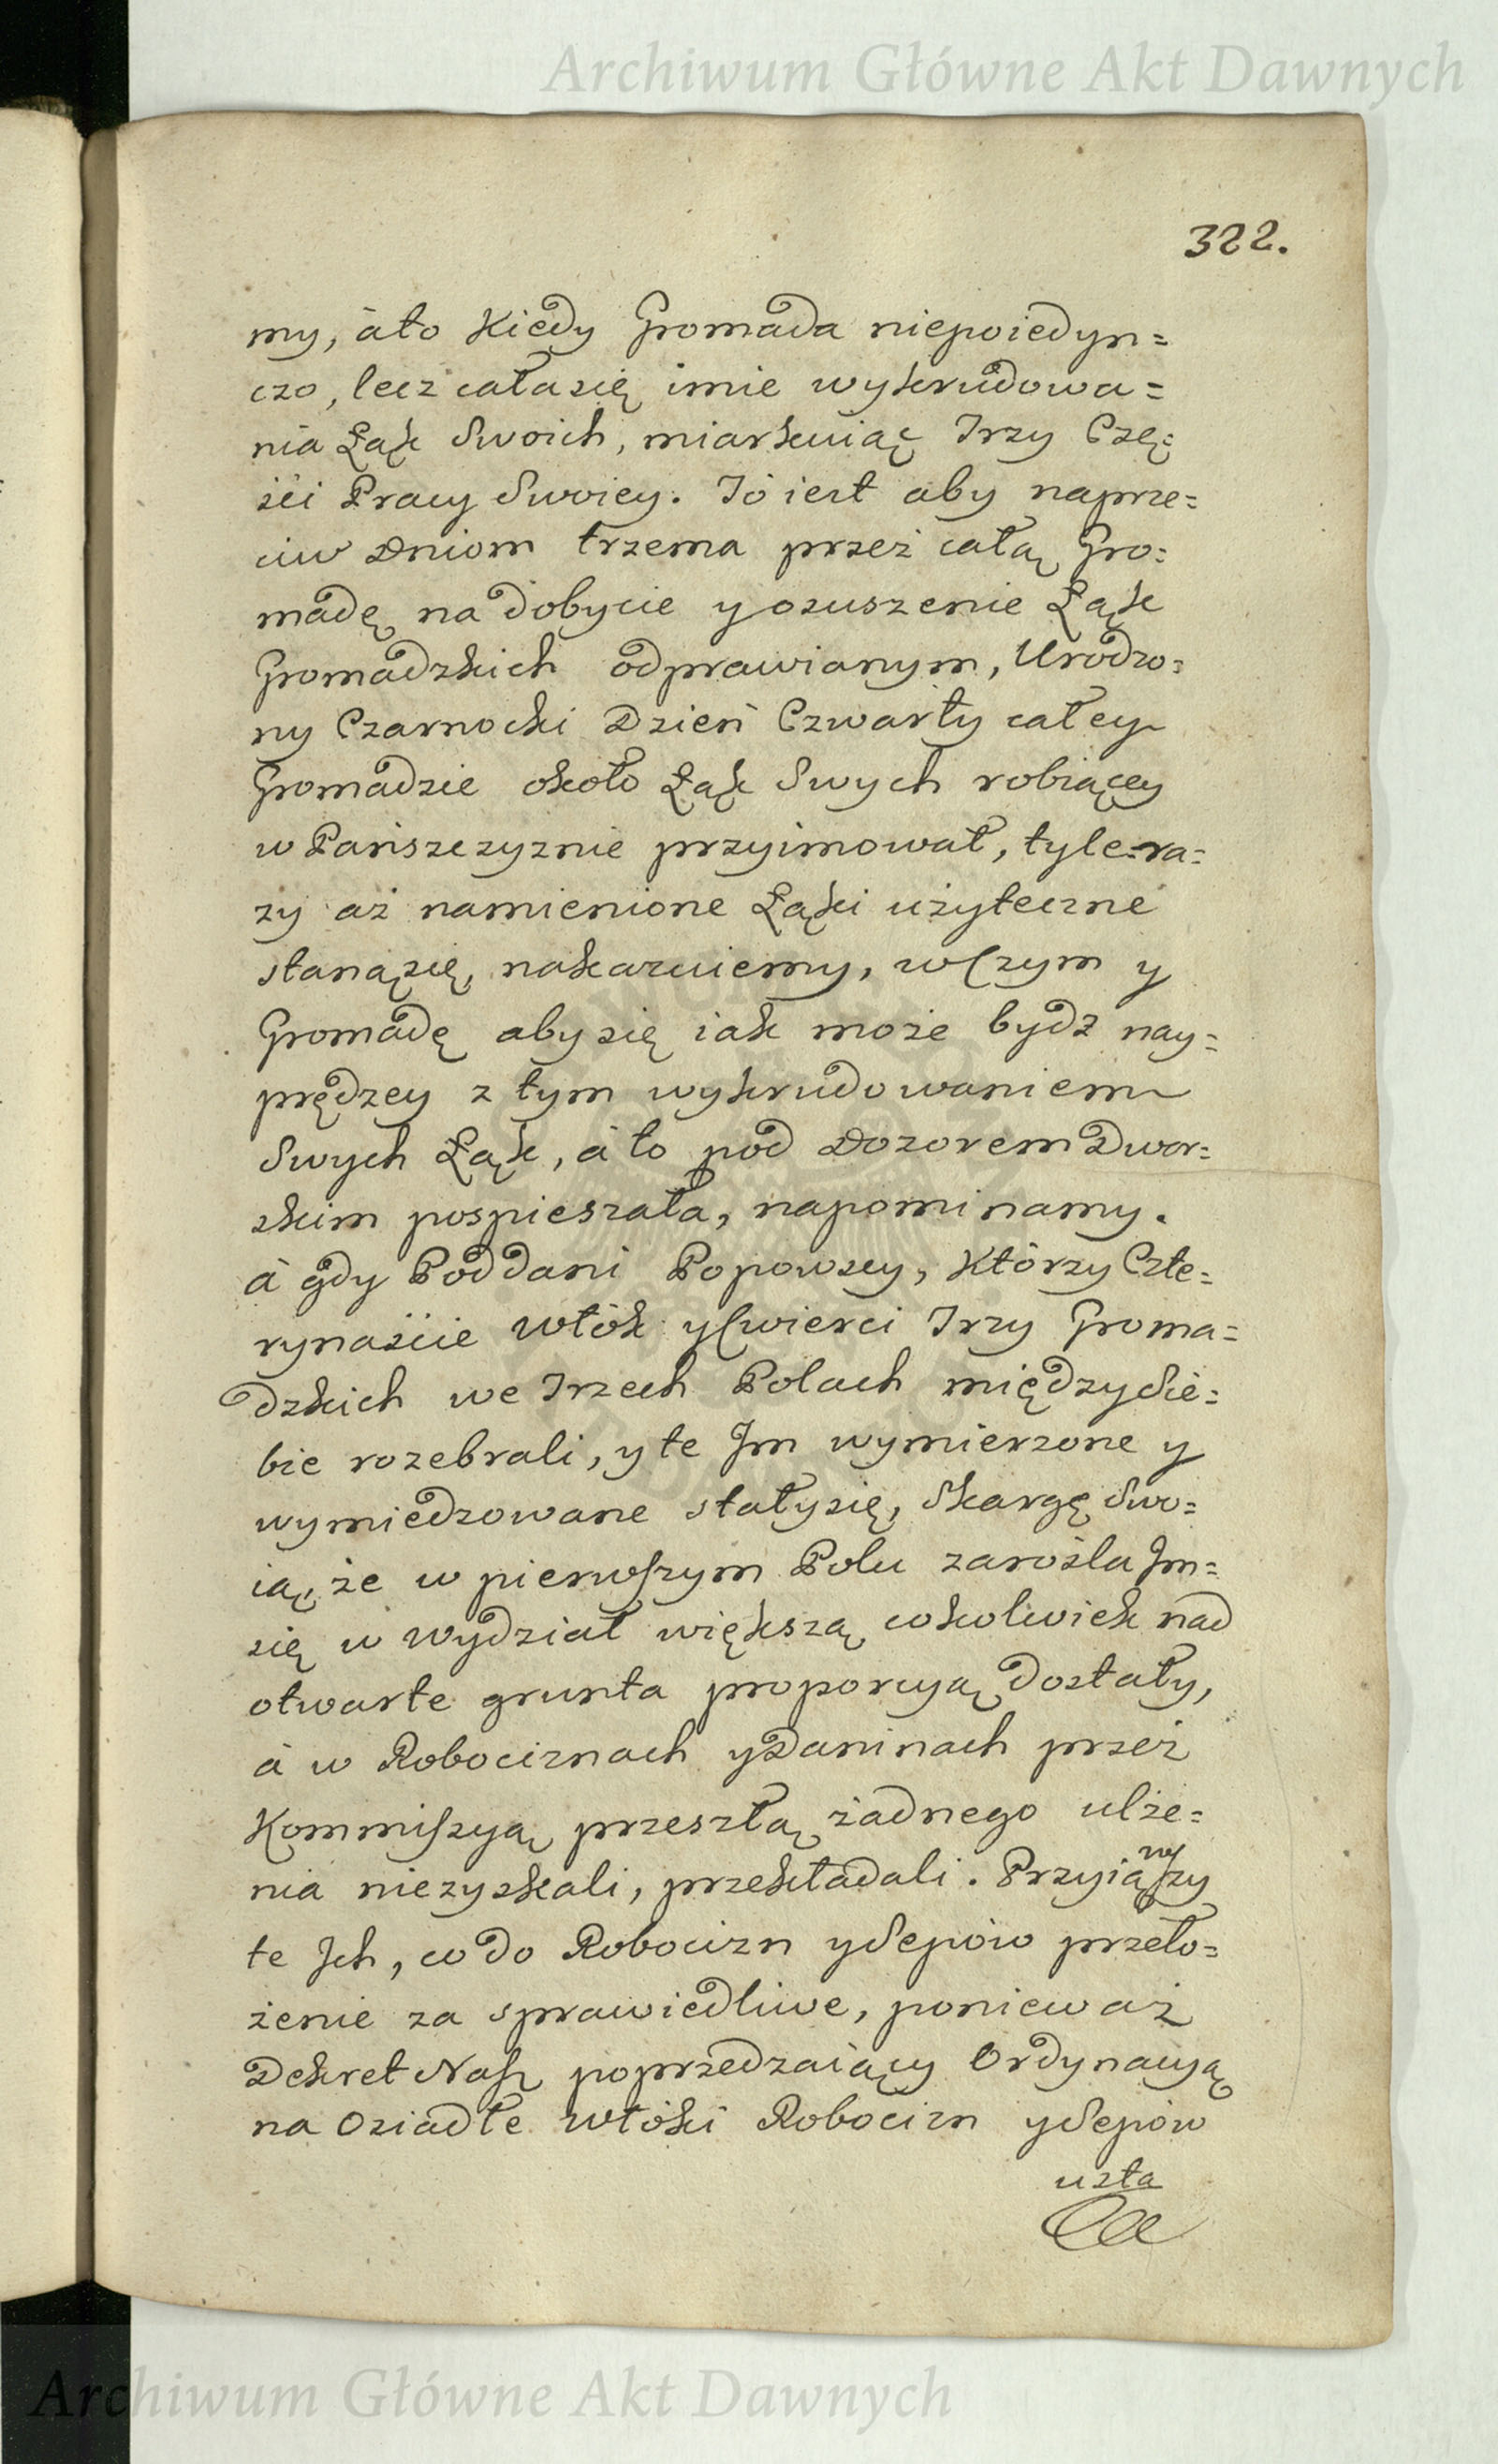 Archiwum Główne Akt Dawnych
322.
my, áto Kiedy Gromada niepoiedyn=
czo, lecz całasię imie wykrudowa=
nia Łąk Swoich, miarkuiąc Trzy Czę=
ści Pracy Swoiey. Tó iest aby naprze=
ciw Dniom trzema przez całą Gro=
madę na dobycie y osuszenie Łąk
Gromadzkich odprawianym, Urodzo=
ny Czarnocki Dzień Czwarty całey
Gromadzie około Łąk Swych robiącey
w Pańszczyznie przyimował, tyle=ra=
zy aż namienione Łąki użyteczne
stanąsię, nakazuiemy, wczym y
Gromadę aby się iak może bydz nay=
prędzey z tym wykrudowaniem
Swych Łąk, á to pod Dozorem Dwor=
skim pospieszała, napominamy.
á gdy Poddani Popowscy, Którzy Czte=
rynaście Włók y Cwierci Trzy Groma=
dzkich we Trzech Polach między Sie=
bie rozebrali, y te Im wymierzone y
wymiedzowane stały się, Skargę Swo=
ią, że w pierwszym Polu zarosla Im=
się w Wydział większą cokolwiek nad
otwarte grunta proporcyą Dostały,
á w Robociznach y Daninach przez
Kommiszyą przeszłą żadnego ulże=
nia niezyskali, przekładali. Przyiąwszy
te Ich, co do Robocizn y Sepów przeło=
żenie za sprawiedliwe, ponieważ
Dekret Nasz poprzedzaiący Ordynacyą
na Osiadłe Włóki Robocizn y Sepów
usta
Archiwum Główne Akt Dawnych